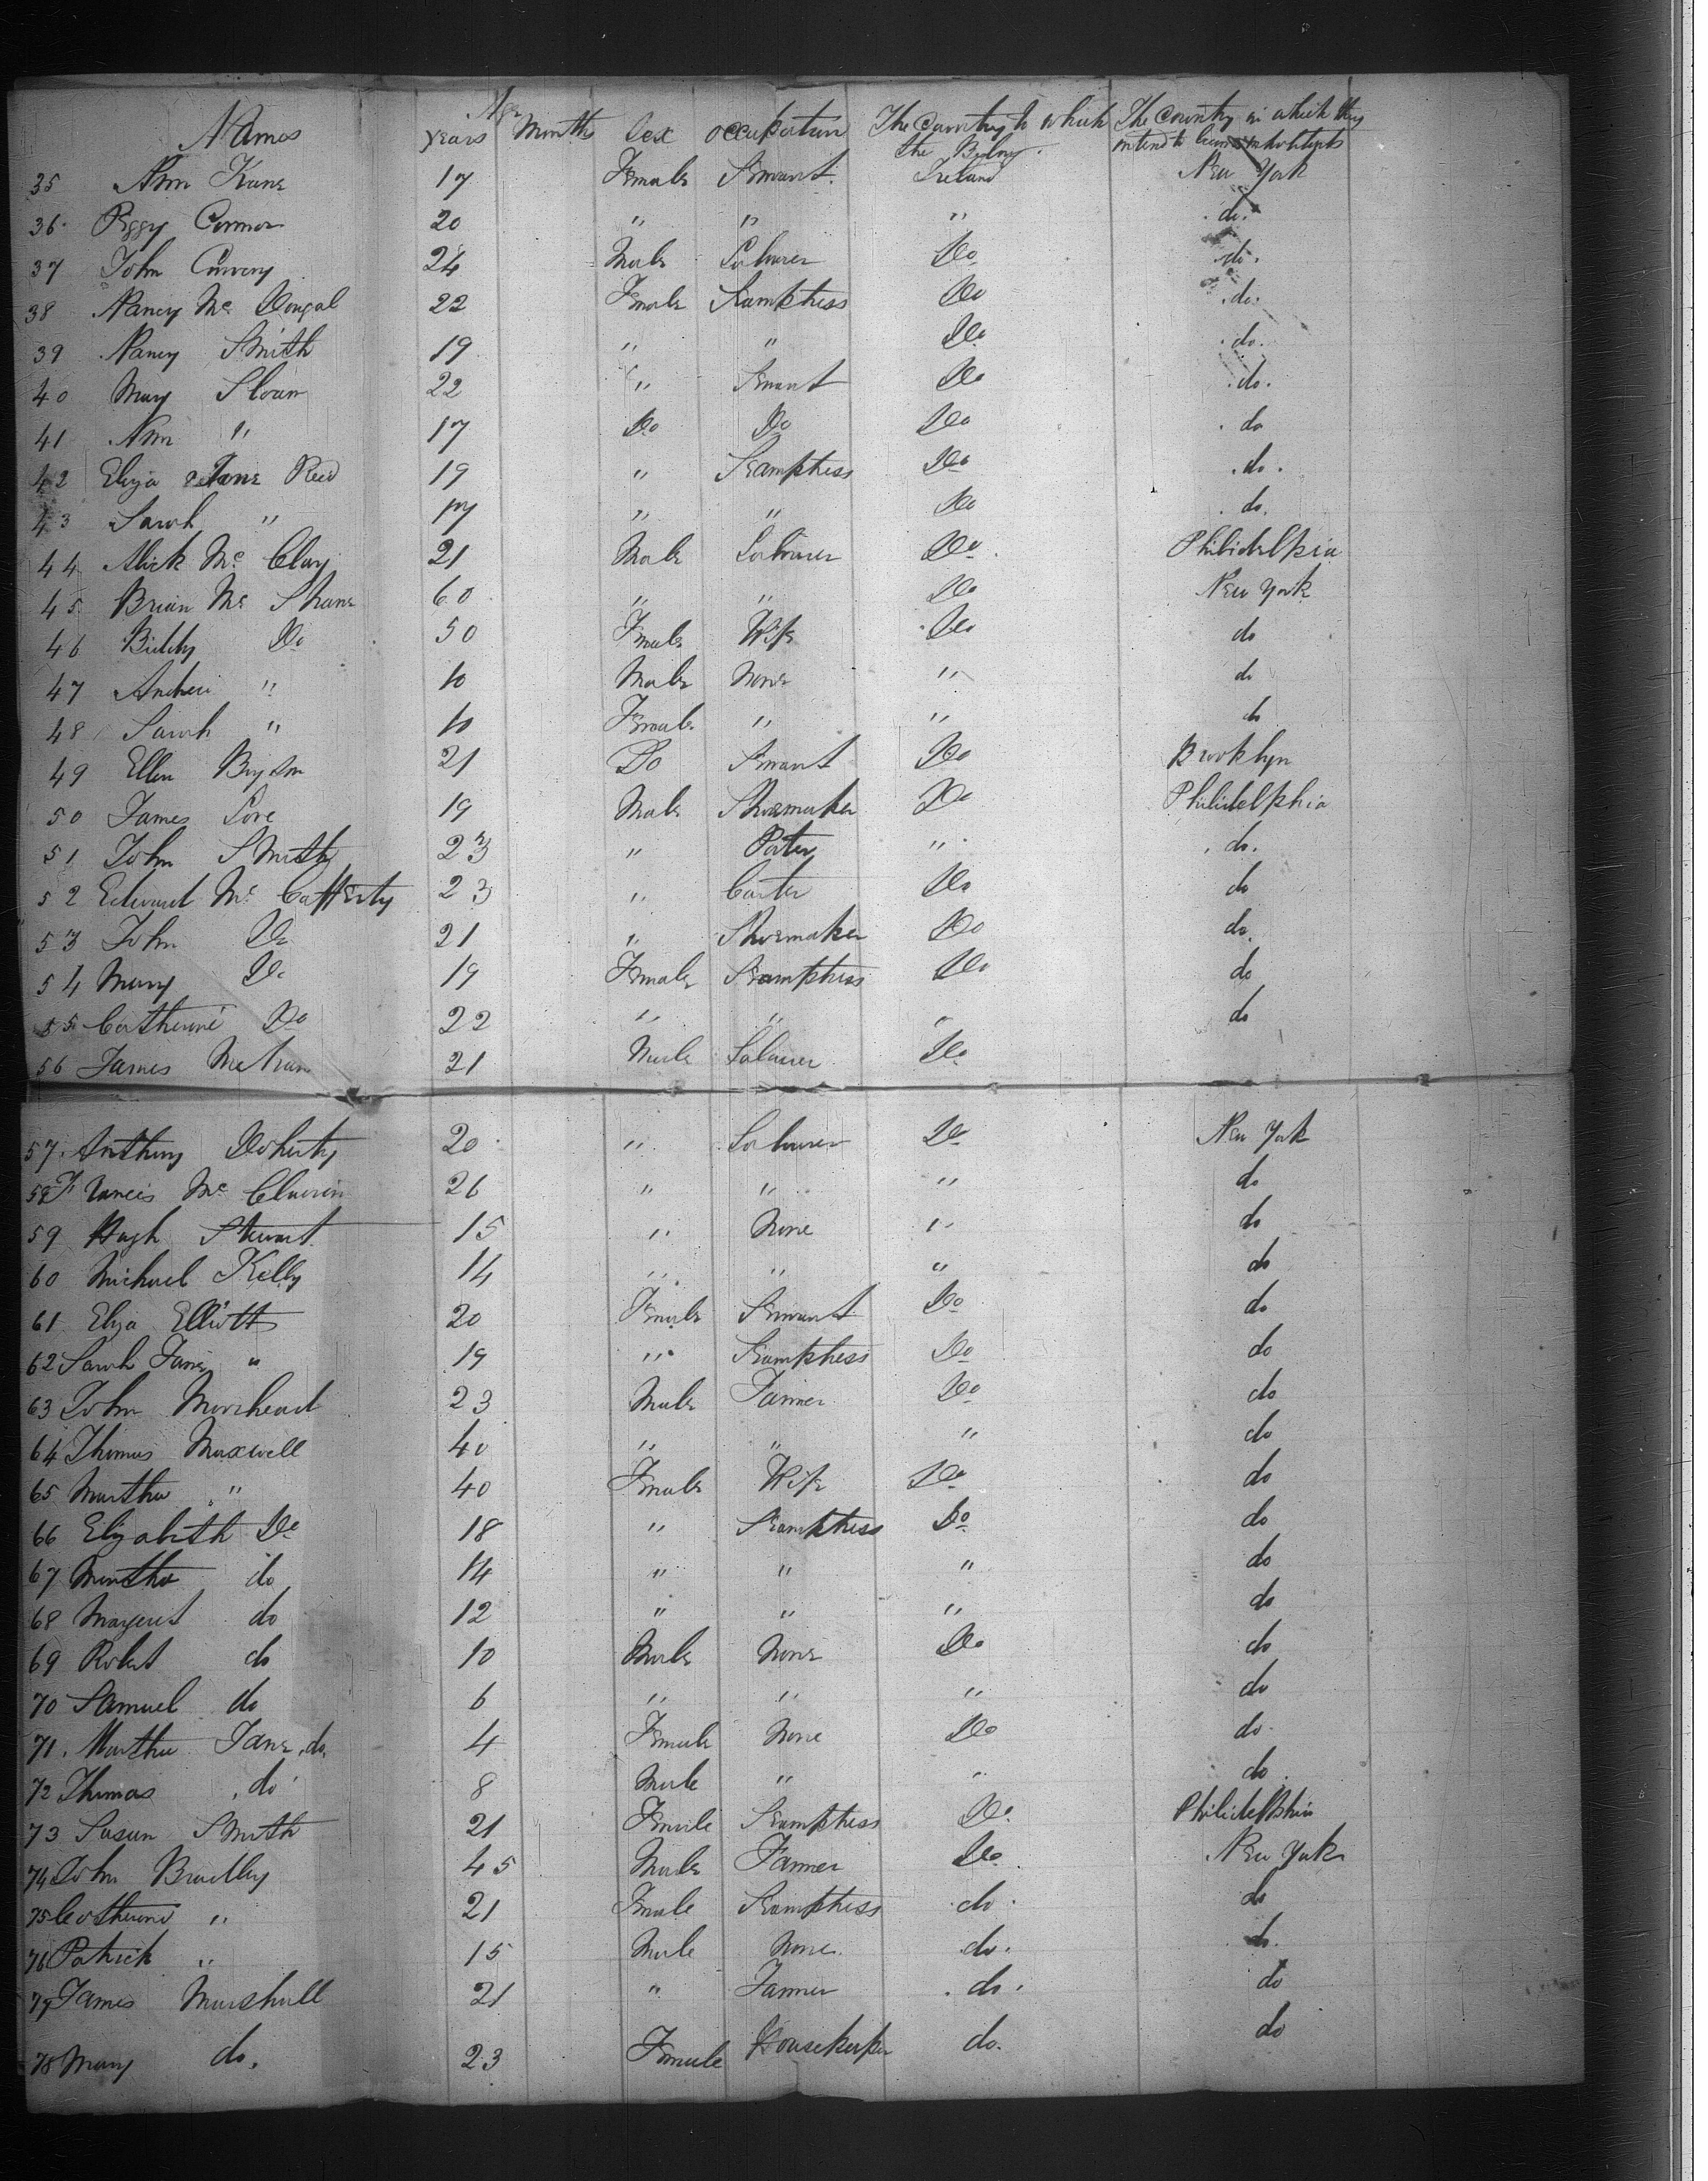 Names Age Years Months Sex Occupation The Country to which the Belong. The Country in which they intend to become inhabitants
35 Ann Kane 17 Female Servant. Ireland New York
36. Peggy Connor 20 " " " do.
37 John Convery 24 Male Labourer Do do.
38 Nancy Mc Dougal 22 Female Seamptress Do do.
39 Nancy Smith 19 " " Do do.
40 Mary Sloan 22 " Servant Do do.
41 Ann " 17 Do Do Do do
42 Eliza Jane Reid 19 " Seamptress Do do.
43 Sarah " 17 " " Do do.
44 Alick Mc Clay 21 Male Labourer Do. Philidelphia
45 Brian Mc Shane 60 " " Do New York
46 Biddy Do 50 Female Wife Do do
47 Andrew " 10 Male None " do
48 Sarah " 10 Female " " do
49 Ellen Bryson 21 Do Servant Do Brooklyn
50 James Love 19 Male Shoemaker Do Philidelphia
51 John Smith 23 " Porter " do.
52 Edward Mc Cafferty 23 " Carter Do do
53 John Do 21 " Shoemaker Do do.
54 Mary Do 19 Female Seamptress Do do
55 Catherine Do 22 " " " do
56 James 21 Male Labourer Do
57. Anthony Doherty 20 " Labourer Do New York
58 Francis Mc 26 " " " do
59 Hugh Stewart 15 " None " do
60 Michael Kelly 14 " " " do
61 Eliza Elliott 20 Female Servant Do do
62 Sarah Jane " 19 " Seamptress Do do
63 John Morehead 23 Male Farmer Do do
64 Thomas Maxwell 40 " " " do
65 Martha " 40 Female Wife Do do
66 Elizabeth Do 18 " Seamptress Do do
67 Martha do 14 " " " do
68 Margaret do 12 " " " do
69 Robert do 10 Male None Do do
70 Samuel do 6 " " " do
71. Martha Jane do. 4 Female None Do do
72 Thomas do 8 Male " " do
73 Susan Smith 21 Female Seamptress Do. Philidelphia
74 John Bradley 45 Male Farmer Do New York
75 Catherine " 21 Female Seamptress do. do
76 Patrick " 15 Male None. do. do.
77 James Marshall 21 " Farmer do. do
78 Mary do. 23 Female Housekeeper do. do